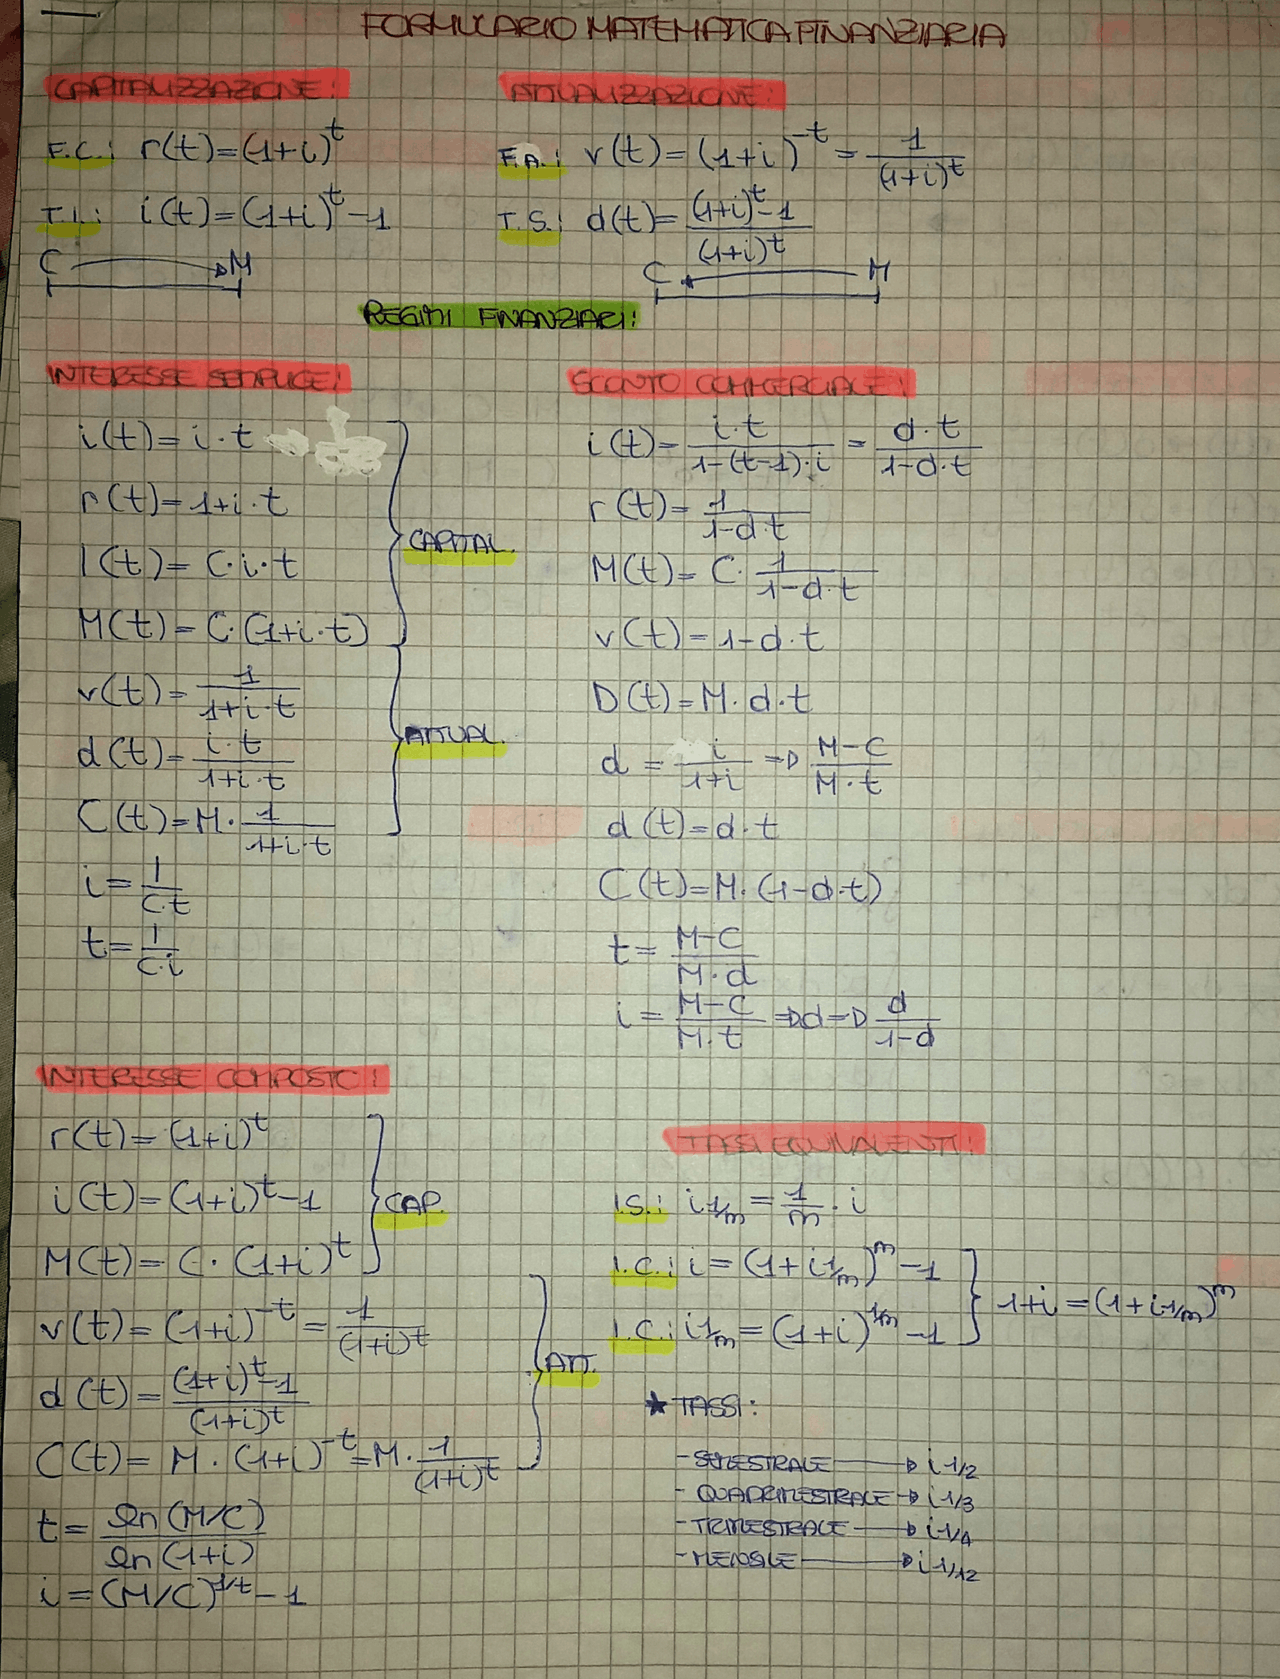 FORMULARIO MATEMATICA FINANZIARIA
CAPITALIZZAZIONE:
F.C.: r(t)=(1+i)^t
T.I.: i(t)=(1+i)^t-1
C M
ATTUALIZZAZIONE:
F.A.: v(t)=(1+i)^-t = 1/(1+i)^t
T.S.: d(t)=((1+i)^t-1)/(1+i)^t
C M
REGIMI FINANZIARI:
INTERESSE SEMPLICE:
i(t)=i·t
r(t)=1+i·t
I(t)=C·i·t
M(t)=C·(1+i·t)
CAPITAL.
v(t)=1/(1+i·t)
d(t)=i·t/(1+i·t)
C(t)=M·1/(1+i·t)
ATTUAL.
i=I/(C·t)
t=I/(C·i)
SCONTO COMMERCIALE:
i(t)=i·t/(1-(t-1)·i)=d·t/(1-d·t)
r(t)=1/(1-d·t)
M(t)=C·1/(1-d·t)
v(t)=1-d·t
D(t)=M·d·t
d=i/(1+i) ⇒ (M-C)/(M·t)
d(t)=d·t
C(t)=M·(1-d·t)
t=(M-C)/(M·d)
i=(M-C)/(M·t) ⇒ d ⇒ d/(1-d)
INTERESSE COMPOSTO:
r(t)=(1+i)^t
i(t)=(1+i)^t-1
M(t)=C·(1+i)^t
CAP.
v(t)=(1+i)^-t=1/(1+i)^t
d(t)=((1+i)^t-1)/(1+i)^t
C(t)=M·(1+i)^-t=M·1/(1+i)^t
ATT.
t=ln(M/C)/ln(1+i)
i=(M/C)^1/t-1
TASSI EQUIVALENTI:
I.S.: i1/m=1/m·i
I.C.: i=(1+i1/m)^m-1
I.C.: i1/m=(1+i)^1/m-1
1+i=(1+i1/m)^m
★ TASSI:
-SEMESTRALE → i1/2
-QUADRIMESTRALE → i1/3
-TRIMESTRALE → i1/4
-MENSILE → i1/12